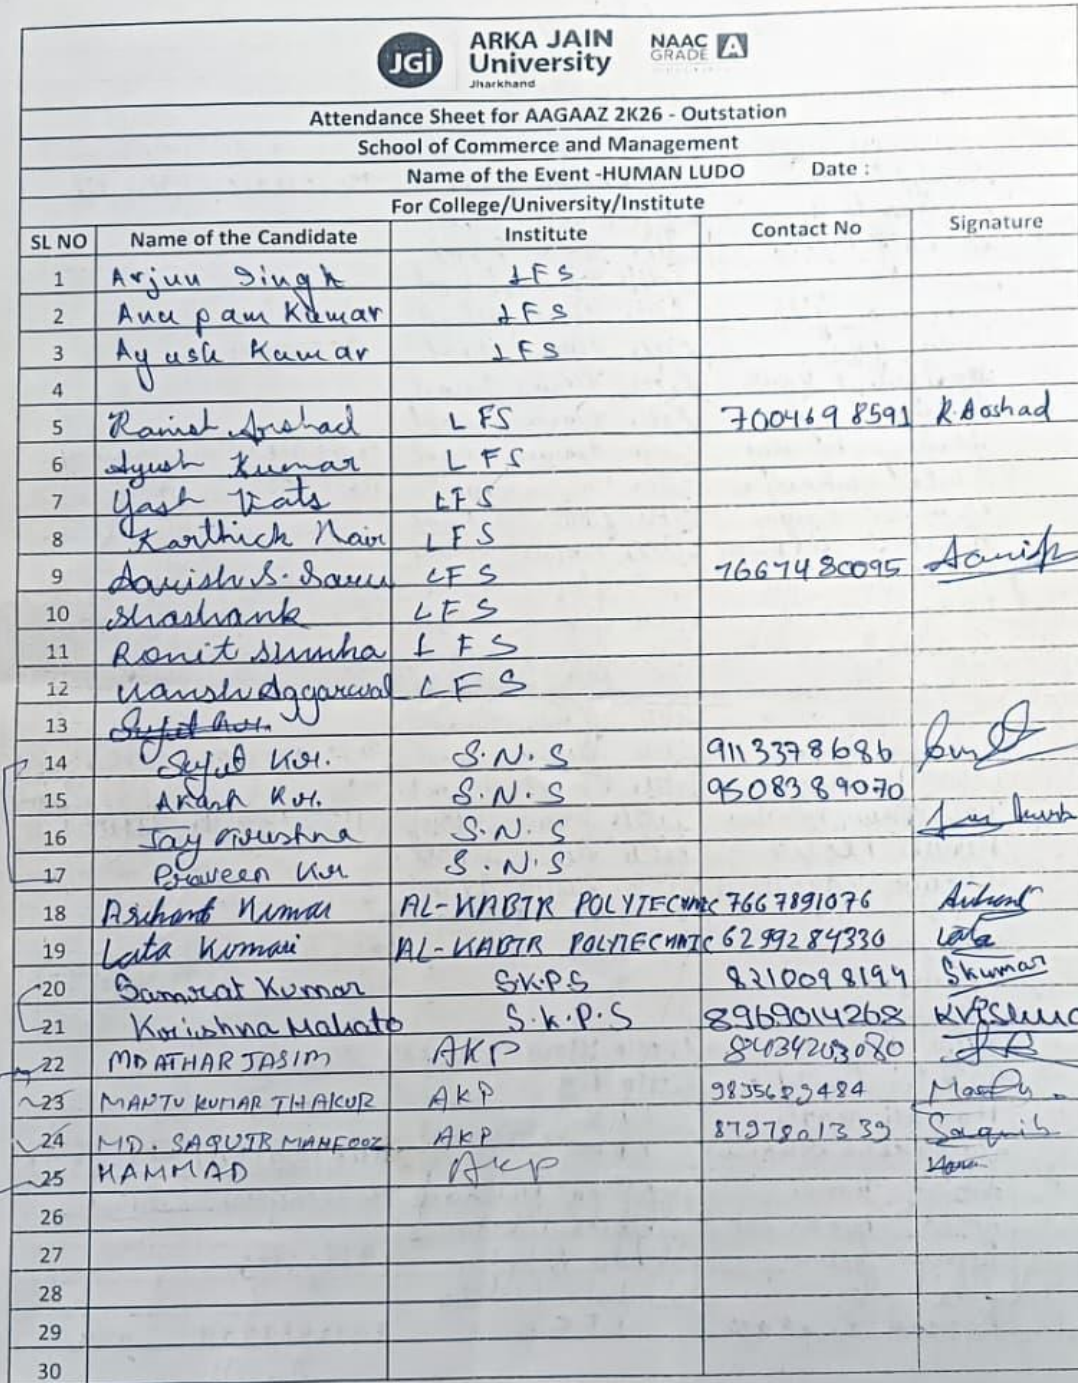 JGi ARKA JAIN University Jharkhand NAAC GRADE A
Attendance Sheet for AAGAAZ 2K26 - Outstation
School of Commerce and Management
Name of the Event -HUMAN LUDO Date :
For College/University/Institute
SL NO Name of the Candidate Institute Contact No Signature
1 Arjun Singh LFS
2 Anupam Kumar LFS
3 Ayush Kumar LFS
4
5 Arshad LFS 7004698591
6 Ayush Kumar LFS
7 Yash Vats LFS
8 Karthick Nair LFS
9 LFS 7667480095
10 Shashank LFS
11 Ronit Sinha LFS
12 Vansh Aggarwal LFS
13
14 Sujit Kr. S.N.S 9113378686
15 Akash Kr. S.N.S 9508389070
16 Jay Krushna S.N.S
17 Praveen Kr S.N.S
18 Arihant Kumar AL-KABIR POLYTECHNIC 7667891076
19 Lata Kumari AL-KABIR POLYTECHNIC 6299284330 Lata
20 Samrat Kumar S.K.P.S 8210098194 Skumar
21 Krishna Mahato S.K.P.S 8969014268
22 MD ATHAR JASIM AKP
23 MANTU KUMAR THAKUR AKP
24 MD. SAQUIB MAHFOOZ AKP Saquib
25 HAMMAD AKP
26
27
28
29
30